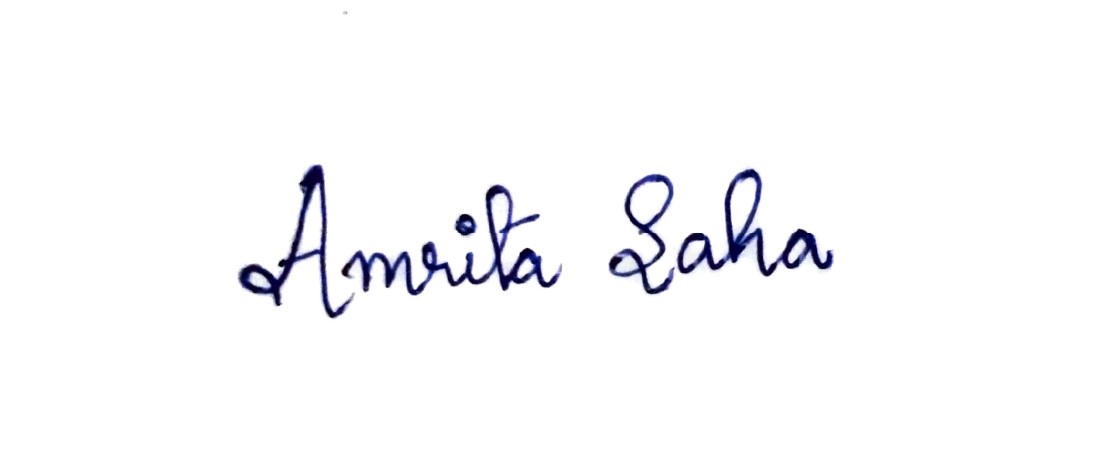 Amrita Saha